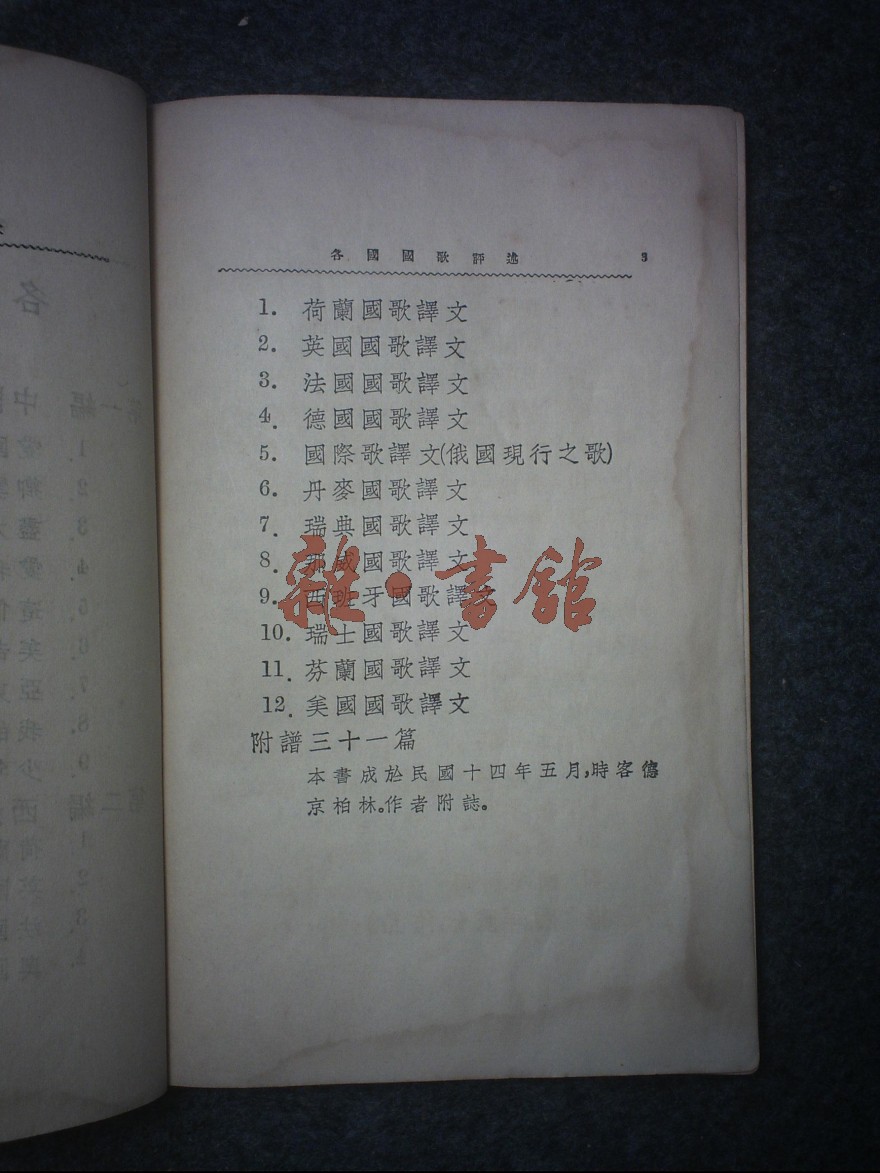 各國國歌評述 3
1. 荷蘭國歌譯文
2. 英國國歌譯文
3. 法國國歌譯文
4. 德國國歌譯文
5. 國際歌譯文(俄國現行之歌)
6. 丹麥國歌譯文
7. 瑞典國歌譯文
8. 那威國歌譯文
9. 西班牙國歌譯文
10. 瑞士國歌譯文
11. 芬蘭國歌譯文
12. 美國國歌譯文
附譜三十一篇
本書成於民國十四年五月,時客德
京柏林。作者附誌。
雜·書館